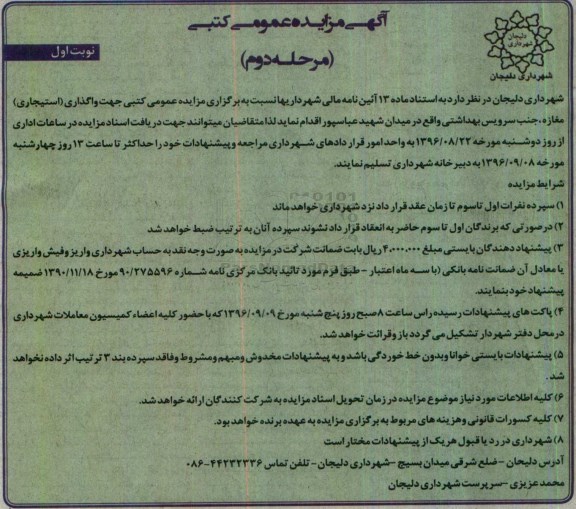 آگهی مزایده عمومی کتبی
(مرحله دوم)
نوبت اول
دلیجان
شهرداری
شهرداری دلیجان
شهرداری دلیجان در نظر دارد به استناد ماده ۱۳ آئین نامه مالی شهرداریها نسبت به برگزاری مزایده عمومی کتبی جهت واگذاری (استیجاری)
مغازه ،جنب سرویس بهداشتی واقع در میدان شهید عباسپور اقدام نماید لذا متقاضیان میتوانند جهت دریافت اسناد مزایده در ساعات اداری
از روز دوشنبه مورخه ۱۳۹۶/۰۸/۲۲ به واحد امور قرار دادهای شهرداری مراجعه و پیشنهادات خود را حداکثر تا ساعت ۱۳ روز چهارشنبه
مورخه ۱۳۹۶/۰۹/۰۸ به دبیر خانه شهرداری تسلیم نمایند.
شرایط مزایده
۱) سپرده نفرات اول تا سوم تا زمان عقد قرار داد نزد شهرداری خواهد ماند
۲) در صورتی که برندگان اول تا سوم حاضر به انعقاد قرار داد نشوند سپرده آنان به ترتیب ضبط خواهد شد
۳) پیشنهاد دهندگان بایستی مبلغ ۴،۰۰۰،۰۰۰ ریال بابت ضمانت شرکت در مزایده به صورت وجه نقد به حساب شهرداری واریز وفیش واریزی
یا معادل آن ضمانت نامه بانکی (با سه ماه اعتبار - طبق فرم مورد تائید بانک مرکزی نامه شماره ۹۰/۲۷۵۵۹۶ مورخ ۱۳۹۰/۱۱/۱۸ ضمیمه
پیشنهاد خود بنمایند.
۴) پاکت های پیشنهادات رسیده راس ساعت ۸ صبح روز پنج شنبه مورخ ۱۳۹۶/۰۹/۰۹ که با حضور کلیه اعضاء کمیسیون معاملات شهرداری
در محل دفتر شهردار تشکیل می گردد باز و قرائت خواهد شد.
۵) پیشنهادات بایستی خوانا وبدون خط خوردگی باشد و به پیشنهادات مخدوش ومبهم ومشروط وفاقد سپرده بند ۳ ترتیب اثر داده نخواهد
شد .
۶) کلیه اطلاعات مورد نیاز موضوع مزایده در زمان تحویل اسناد مزایده به شرکت کنندگان ارائه خواهد شد.
۷) کلیه کسورات قانونی وهزینه های مربوط به برگزاری مزایده به عهده برنده خواهد بود.
۸) شهرداری در رد یا قبول هر یک از پیشنهادات مختار است
آدرس دلیجان - ضلع شرقی میدان بسیج - شهرداری دلیجان - تلفن تماس ۴۴۲۳۲۳۳۶-۰۸۶
محمد عزیزی - سرپرست شهرداری دلیجان